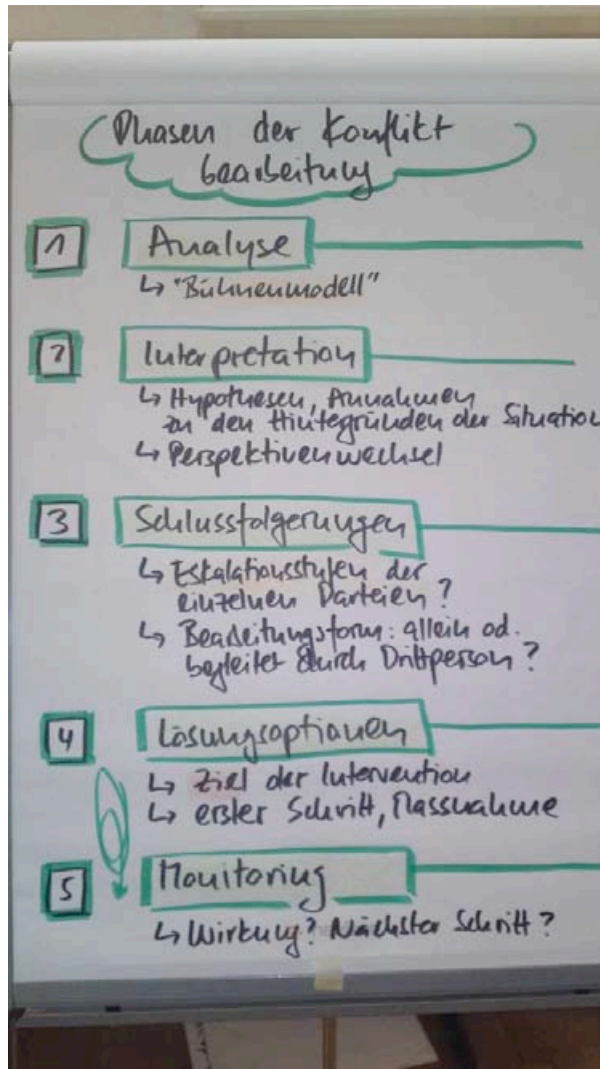 Phasen der Konflikt
bearbeitung
1 Analyse
↳ "Bühnenmodell"
2 Interpretation
↳ Hypothesen, Annahmen
zu den Hintergründen der Situation
↳ Perspektivenwechsel
3 Schlussfolgerungen
↳ Eskalationsstufen der
einzelnen Parteien?
↳ Bearbeitungsform: allein od.
begleitet durch Drittperson?
4 Lösungsoptionen
↳ Ziel der Intervention
↳ erster Schritt, Massnahme
5 Monitoring
↳ Wirkung? Nächster Schritt?